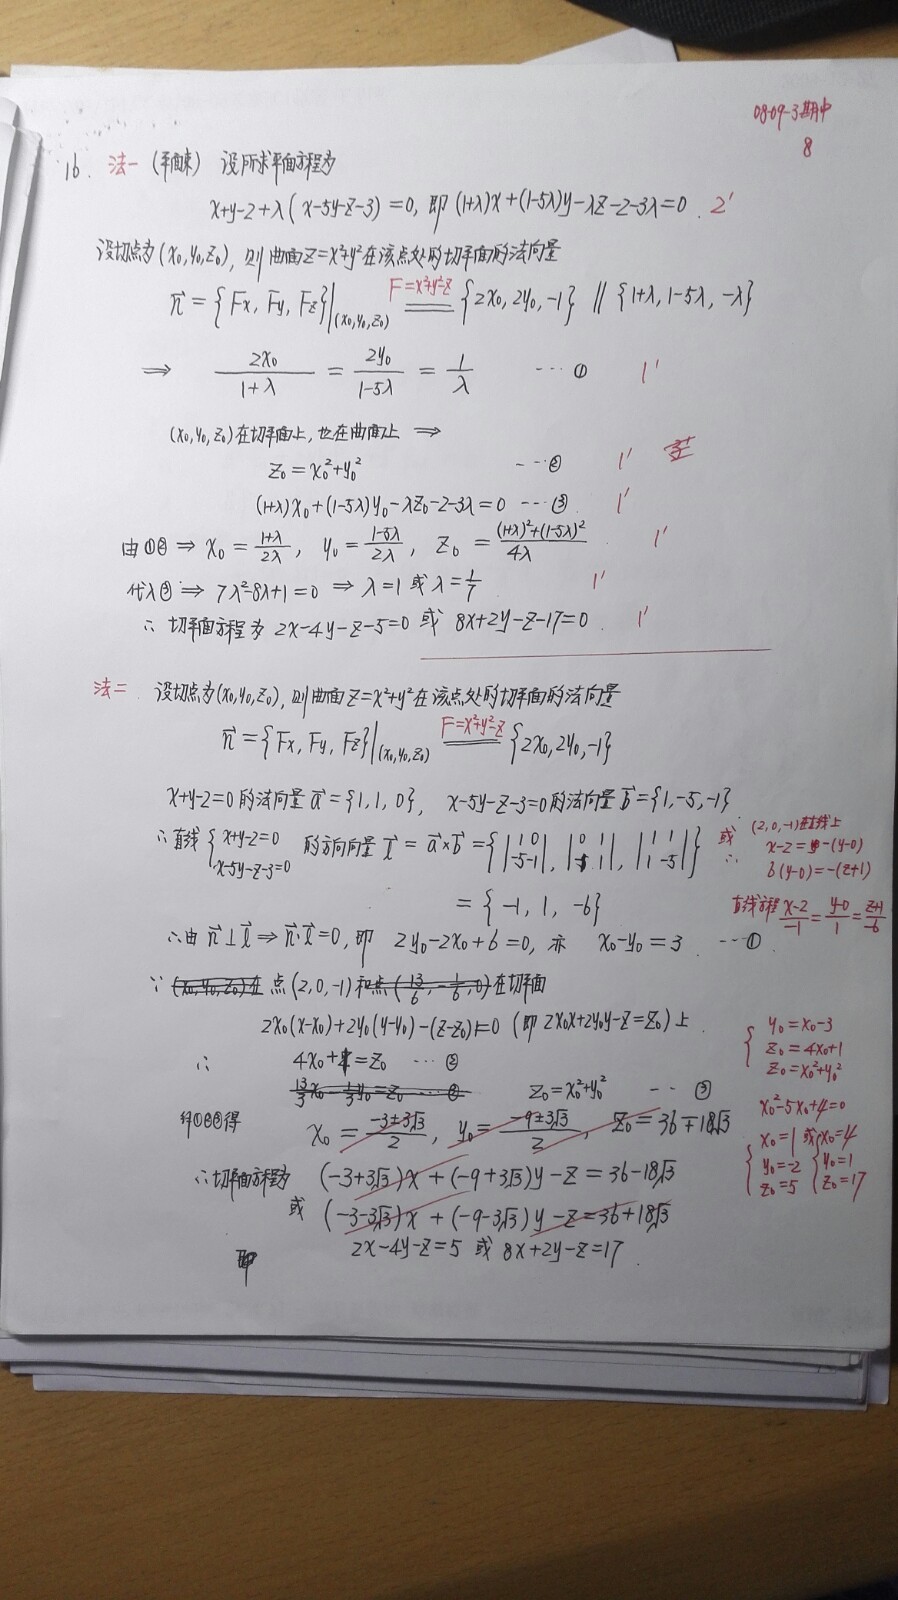 08-09-3期中
8
16. 法一 (平面束) 设所求平面方程为
x+y-2+λ(x-5y-z-3)=0, 即(1+λ)x+(1-5λ)y-λz-2-3λ=0. 2'
设切点为(x₀,y₀,z₀), 则曲面z=x²+y²在该点处的切平面的法向量
n⃗={Fx, Fy, Fz}|(x₀,y₀,z₀) F=x²+y²-z ═══ {2x₀, 2y₀, -1} // {1+λ, 1-5λ, -λ}
⇒ 2x₀/(1+λ) = 2y₀/(1-5λ) = 1/λ ···① 1'
(x₀,y₀,z₀)在切平面上, 也在曲面上 ⇒
z₀=x₀²+y₀² ···② 1'
(1+λ)x₀+(1-5λ)y₀-λz₀-2-3λ=0 ···③ 1'
由①② ⇒ x₀=(1+λ)/2λ, y₀=(1-5λ)/2λ, z₀=((1+λ)²+(1-5λ)²)/4λ 1'
代入③ ⇒ 7λ²-8λ+1=0 ⇒ λ=1 或 λ=1/7 1'
∴ 切平面方程为 2x-4y-z-5=0 或 8x+2y-z-17=0. 1'
法二 设切点为(x₀,y₀,z₀), 则曲面z=x²+y²在该点处的切平面的法向量
n⃗={Fx, Fy, Fz}|(x₀,y₀,z₀) F=x²+y²-z ═══ {2x₀, 2y₀, -1}
x+y-2=0的法向量a⃗={1, 1, 0}, x-5y-z-3=0的法向量b⃗={1, -5, -1}
∴直线 {x+y-2=0 x-5y-z-3=0 的方向向量 l⃗=a⃗×b⃗={|1 0 -5 -1|, |0 1 -1 1|, |1 1 1 -5|}
={-1, 1, -6}
或 (2,0,-1)在直线上
∴ x-2=-(y-0)
6(y-0)=-(z+1)
直线方程 (x-2)/-1=(y-0)/1=(z+1)/-6
∴由 n⃗⊥l⃗ ⇒ n⃗·l⃗=0, 即 2y₀-2x₀+6=0, 亦 x₀-y₀=3 ···①
∵ (x₀,y₀,z₀)在 点(2,0,-1)和点(13/6, -1/6, 0)在切平面
2x₀(x-x₀)+2y₀(y-y₀)-(z-z₀)=0 (即2x₀x+2y₀y-z=z₀)上
∴ 4x₀+1=z₀ ···②
13/3x₀-1/3y₀=z₀ ···② z₀=x₀²+y₀² ···③
①②③得 x₀=(-3±3√3)/2, y₀=(-9±3√3)/2, z₀=36∓18√3
∴切平面方程为 (-3+3√3)x+(-9+3√3)y-z=36-18√3
或 (-3-3√3)x+(-9-3√3)y-z=36+18√3
即 2x-4y-z=5 或 8x+2y-z=17.
{y₀=x₀-3
z₀=4x₀+1
z₀=x₀²+y₀²
x₀²-5x₀+4=0
{x₀=1 或 {x₀=4
y₀=-2 y₀=1
z₀=5 z₀=17